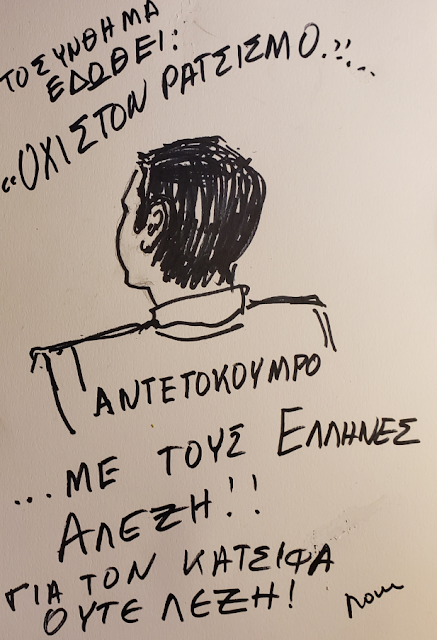 ΤΟ ΣΥΝΘΗΜΑ
ΕΔΩΘΕΙ:
«ΟΧΙ ΣΤΟΝ ΡΑΤΣΙΣΜΟ.»...
ΑΝΤΕΤΟΚΟΥΜΡΟ
...ΜΕ ΤΟΥΣ ΕΛΛΗΝΕΣ
ΑΛΕΞΗ!!
ΓΙΑ ΤΟΝ ΚΑΤΣΙΦΑ
ΟΥΤΕ ΛΕΞΗ!